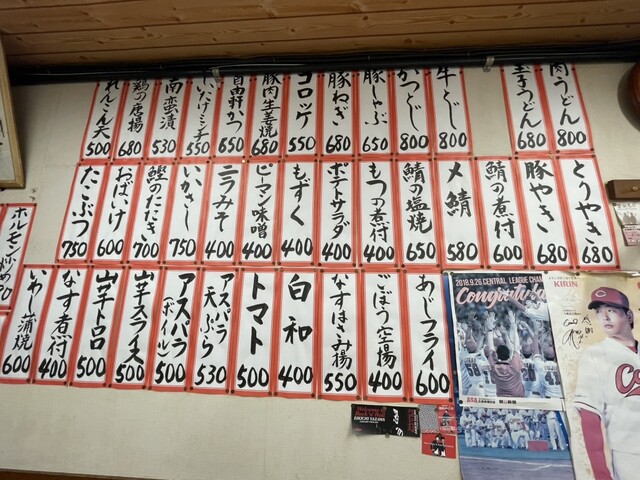 肉うどん 800
玉子うどん 680
牛くし 800
かつくし 800
豚しゃぶ 650
豚ねぎ 680
コロッケ 550
豚肉生姜焼 680
自由軒かつ 650
しいたけミンチ 550
南蛮漬 530
鶏の唐揚 680
れんこん天 500
とりやき 680
豚やき 680
鯖の煮付 600
〆鯖 580
鯖の塩焼 650
もつの煮付 400
ポテトサラダ 400
もずく 400
ピーマン味噌 400
ニラみそ 400
いかさし 750
鰹のたたき 700
おばいけ 600
たこぶつ 750
あじフライ 600
ごぼう空揚 400
なすはさみ揚 550
白和 400
トマト 500
アスパラ天ぷら 530
アスパラ(ボイル) 500
山芋スライス 500
山芋トロ 500
なす煮付 400
いわし蒲焼 600
2018.9.26 CENTRAL LEAGUE CHAM
KIRIN